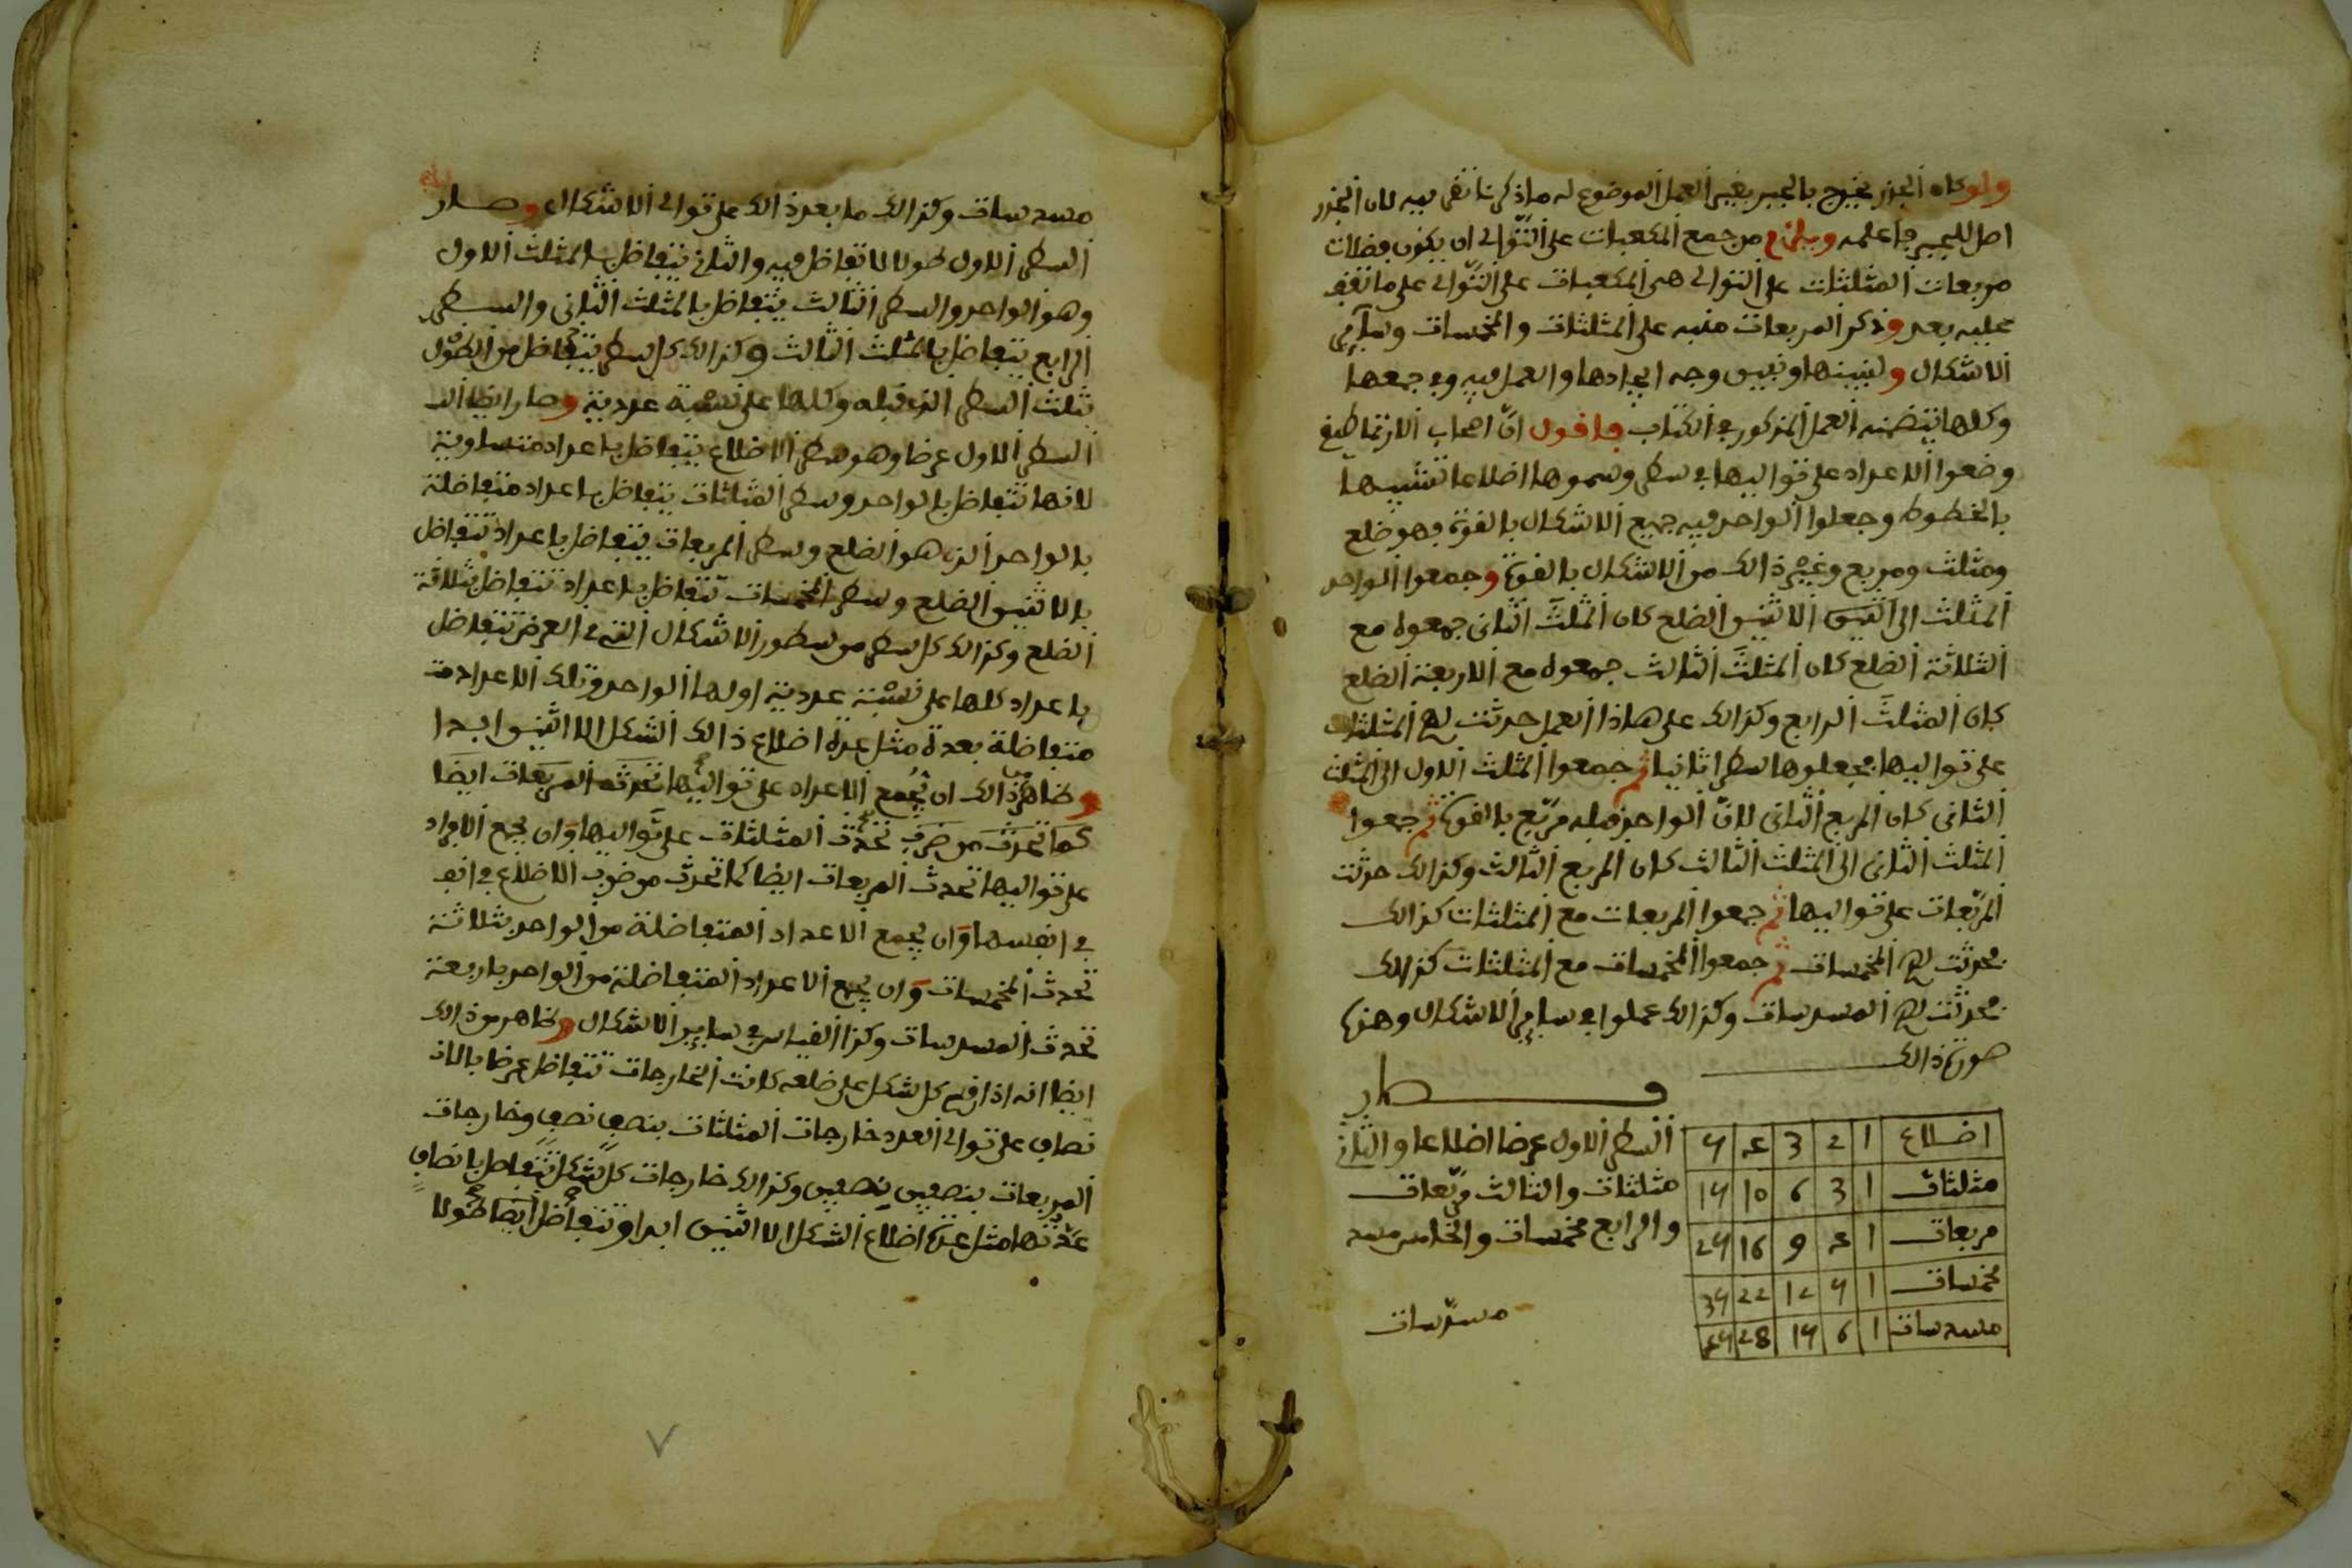 ولو كان الجذر يخرج بالجبر بغير العمل الموضوع له ماذكرنا نقض فيه لان الجذر
اصل للجبر فاعلمه ويلزم من جمع المكعبات على التوالى ان يكون فضلات
مربعات المثلثات على التوالى هى المكعبات على التوالى على ما تقف
عليه بعد وذكر المربعات منبه على المثلثات والمخمسات وسائر
الاشكال ولنبينها ونبين وجه ايجادها والعمل فيه وفى جمعها
وكلها يتضمنه العمل المذكور فى الكتاب فاقول ان اصحاب الارتماطيقى
وضعوا الاعداد على تواليها فى سطر وسموها اضلاعا تشبيها
بالخطوط وجعلوا الواحد فيه جميع الاشكال بالقوة فهو ضلع
ومثلث ومربع وغير ذالك من الاشكال بالقوة وجمعوا الواحد
المثلث الى اثنين الاثنين الضلع كان المثلث الثانى جمعوه مع
الثلاثة الضلع كان المثلث الثالث جمعوه مع الاربعة الضلع
كان المثلث الرابع وكذالك على هاذا العمل حدثت لهم المثلثات
على تواليها فجعلوها سطرا ثانيا ثم جمعوا المثلث الاول الى المثلث
الثانى كان المربع الثانى لان الواحد قبله مربع بالقوة ثم جمعوا
المثلث الثانى الى المثلث الثالث كان المربع الثالث وكذالك حدثت
المربعات على تواليها ثم جمعوا المربعات مع المثلثات كذالك
فحدثت لهم المخمسات ثم جمعوا المخمسات مع المثلثات كذالك
فحدثت لهم المسدسات وكذالك عملوا فى ساير الاشكال وهذه
صورة ذالك
فصار
السطر الاول عرضا اضلاعا والثانى
مثلثات والثالث مربعات
والرابع مخمسات والخامس مسد
مسدسات
اضلاع 1 2 3 4 5
مثلثات 1 3 6 10 15
مربعات 1 4 9 16 25
مخمسات 1 5 12 22 35
مسدسات 1 6 15 28 45
مسدسات وكذالك ما بعد ذالك على توالى الاشكال وصار
السطر الاول طولا لا تفاضل فيه والثانى يتفاضل بالمثلث الاول
وهو الواحد والسطر الثالث يتفاضل بالمثلث الثانى والسطر
الرابع يتفاضل بالمثلث الثالث وكذالك كل سطر يتفاضل من الطول
بثلث السطر الذى قبله وكلها على نسبة عددية وصار ايضا الـ
السطر الاول عرضا وهو سطر الاضلاع يتفاضل باعداد متساوية
لانها تتفاضل بالواحد وسطر المثلثات يتفاضل باعداد متفاضلة
بالواحد الذى هو الضلع وسطر المربعات يتفاضل باعداد تتفاضل
بالاثنين الضلع وسطر المخمسات يتفاضل باعداد تتفاضل بثلاثة
الضلع وكذالك كل سطر من سطور الاشكال التى فى العرض تتفاضل
باعداد كلها على نسبة عددية اولها الواحد وتلك الاعداد مت
متفاضلة بعدة مثل عدة اضلاع ذالك الشكل الا اثنين ابدا
وظاهر من ذالك ان بجمع الاعداد على تواليها تحدث المربعات ايضا
كما تحدث من ضرب تحدث المثلثات على تواليها وان بجمع الافراد
على تواليها تحدث المربعات ايضا كما تحدث من ضرب الاضلاع فى انفـ
فى انفسها وان بجمع الاعداد المتفاضلة من الواحد بثلاثة
تحدث المخمسات وان بجمع الاعداد المتفاضلة من الواحد باربعة
تحدث المسدسات وكذا القياس فى ساير الاشكال وظاهر من ذالك
ايضا انه اذا قسم كل شكل على ضلعه كانت الخارجات تتفاضل عرضا بالانـ
نصاف على توالى العدد خارجات المثلثات بنصف نصف وخارجات
المربعات بنصفين نصفين وكذالك خارجات كل شكل تتفاضل بانصاف
عدتها مثل عدة اضلاع الشكل الا اثنين ابدا وتتفاضل ايضا طولا
٧